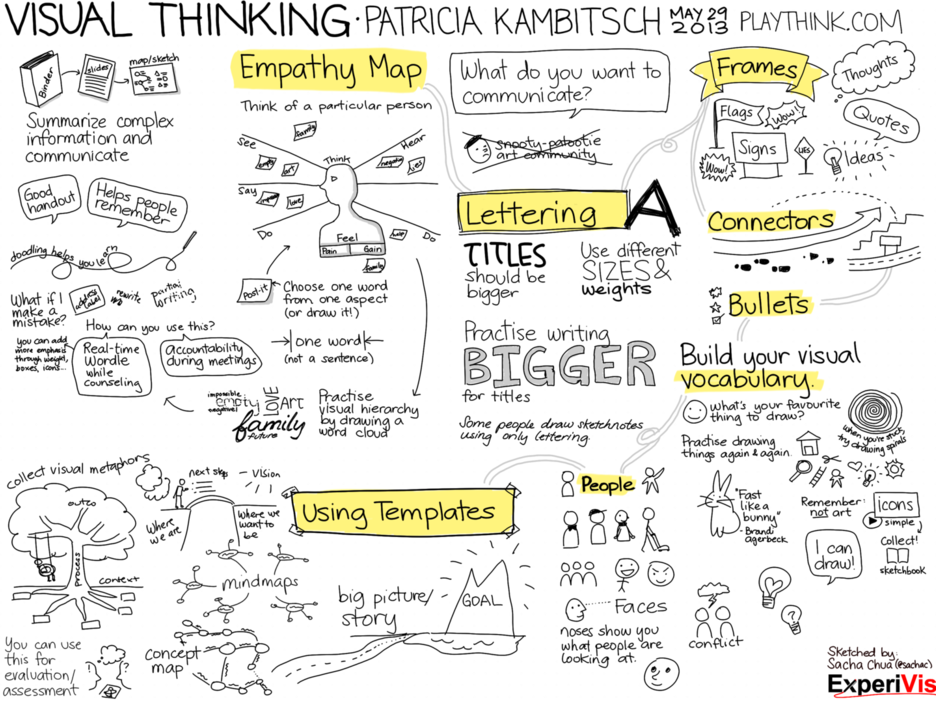 VISUAL THINKING · PATRICIA KAMBITSCH MAY 29 2013 PLAYTHINK.COM
Binder
slides
map/sketch
Summarize complex
information and
communicate
Good
handout
Helps people
remember
doodling helps you learn
What if I
make a
mistake?
address
label
rewrite
partial
writing
you can add
more emphasis
through weight,
boxes, icons...
How can you use this?
Real-time
Wordle
while
counseling
Accountability
during meetings
Empathy Map
Think of a particular person
See
Think
Hear
family
Say
love
negative
lies
Do
Feel
Pain
Gain
Do
family
Post-it
Choose one word
from one aspect
(or draw it!)
one word
(not a sentence)
impossible
empty
negative
LOVE
Art
family
future
Practise
visual hierarchy
by drawing a
word cloud
What do you want to
communicate?
snooty-patootie
art community
Lettering
A
TITLES
should be
bigger
Use different
SIZES &
weights
Practise writing
BIGGER
for titles
Some people draw sketchnotes
using only lettering.
Frames
Thoughts
Flags
Wow!
Quotes
Signs
YES
Wow!
Ideas
Connectors
Bullets
Build your visual
vocabulary.
what's your favourite
thing to draw?
when you're stuck
try drawing spirals
Practise drawing
things again & again.
"Fast
like a
bunny"
- Brandi
agerbeck
Remember:
not art
icons
simple
collect!
sketchbook
I can
draw!
People
Faces
noses show you
what people are
looking at.
conflict
collect visual metaphors
outco
process
context
next step
VISION
Where
we are
Where we
want to
be
mindmaps
concept
map
You can use
this for
evaluation/
assessment
Using Templates
big picture/
story
GOAL
Sketched by:
Sacha Chua (@sachac)
ExperiVis